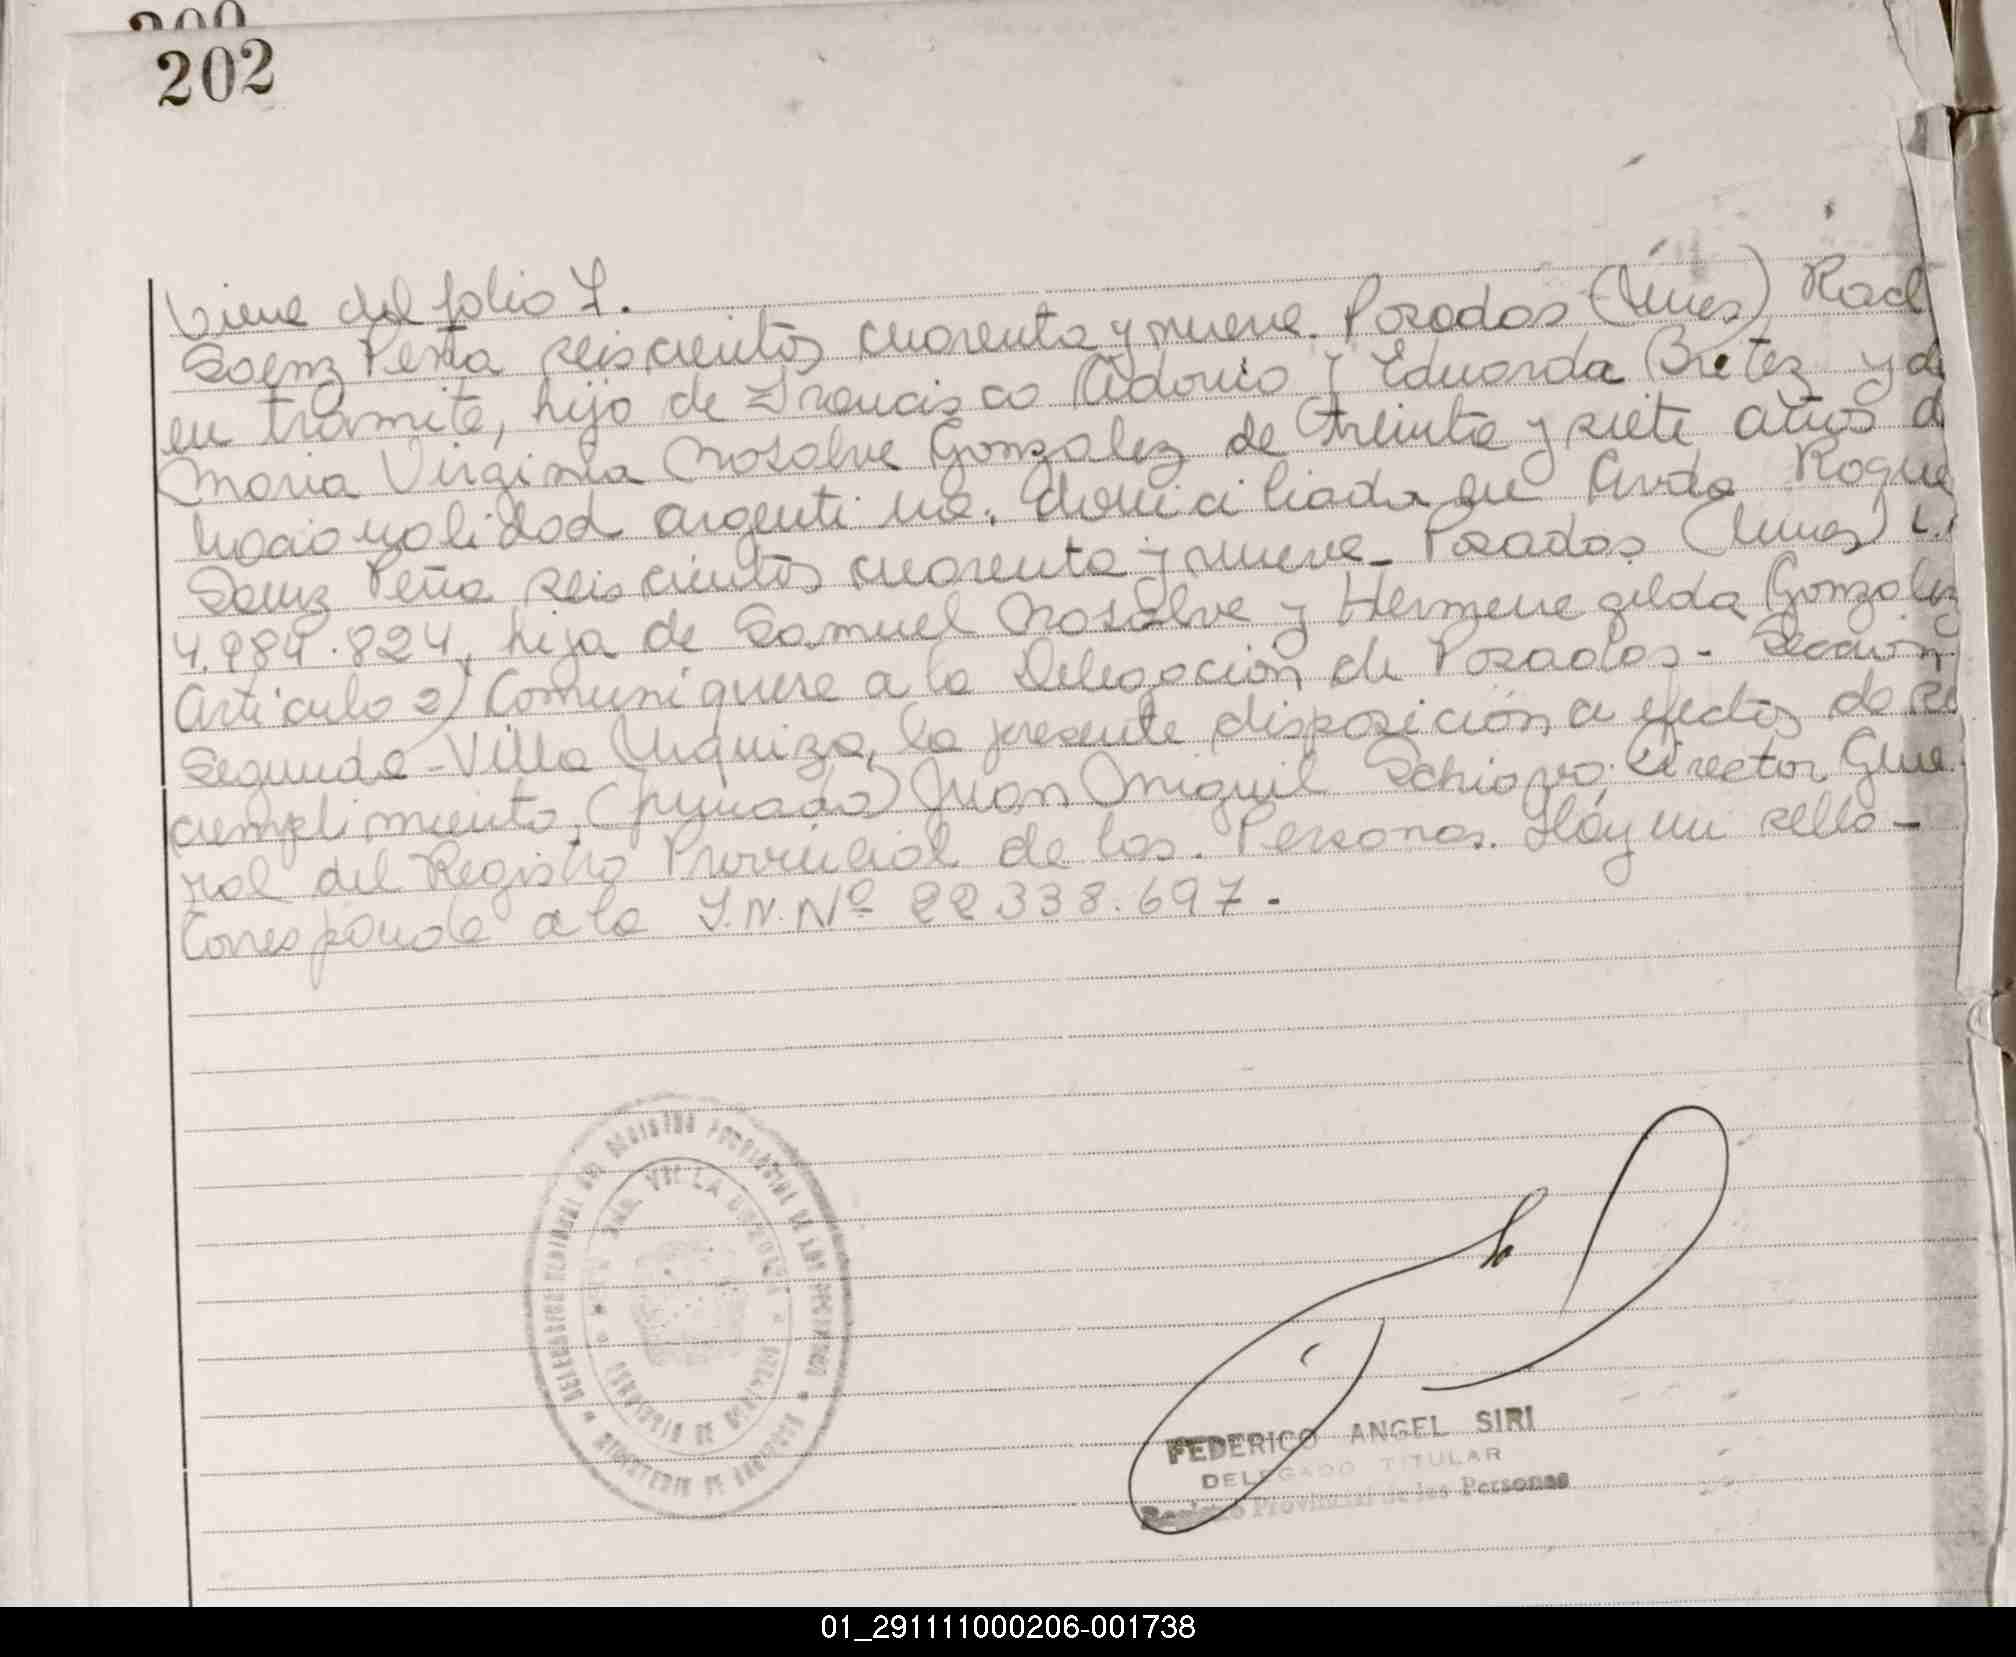 200
202
Viene del folio 1.
Saenz Peña seiscientos cuarenta y nueve. Posadas (Mnes) Rad
en tramite, hijo de Francisco Adonio y Eduarda Britez y de
Maria Virginia Mosalve Gonzalez de treinta y siete años d
nacionalidad argentina. domiciliada en Avda Roque
Saenz Peña seiscientos cuarenta y nueve - Posadas (Mnes) L.
4.984.824, hija de Samuel Mosalve y Hermenegilda Gonzalez
Articulo 2) Comuniquese a la Delegación de Posadas - Sección
Segunda - Villa Urquiza, la presente disposición a efectos de su
cumplimiento, (firmado) Juan Miguel Schiavo. Director Gene
ral del Registro Provincial de las Personas. Hay un sello -
Corresponde a la I.N.Nº 22.338.697.-
REGISTRO PROVINCIAL DE LAS PERSONAS
VILLA URQUIZA
MINISTERIO DE GOBIERNO
FEDERICO ANGEL SIRI
DELEGADO TITULAR
Registro Provincial de las Personas
01_291111000206-001738